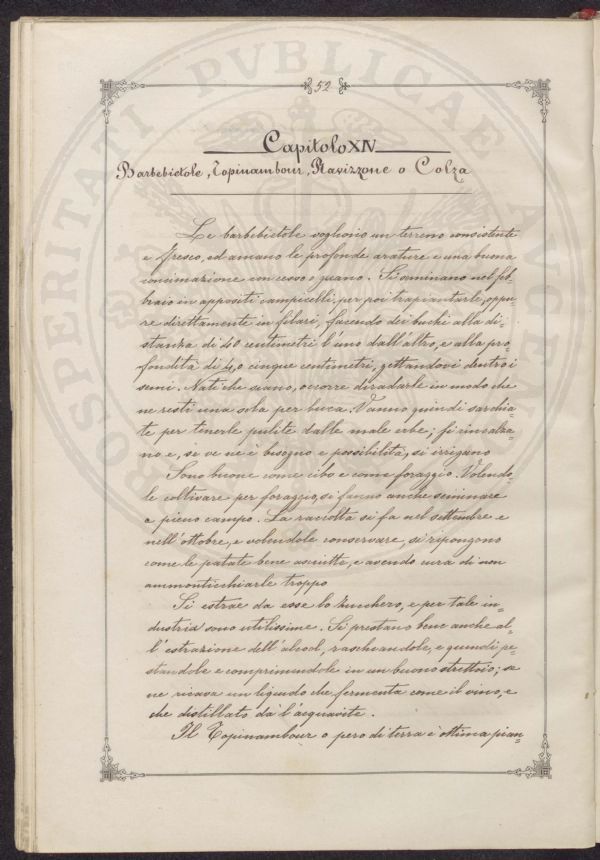 52
Capitolo XIV
Barbebietole, Topinambour, Ravizzone o Colza
Le barbebietole vogliono un terreno consistente
e fresco, ed amano le profonde arature e una buona
concimazione con cesso e guano. Si seminano nel feb-
braio in appositi campicelli, per poi trapiantarle, oppu-
re direttamente in filari, facendo dei buchi alla di-
stanza di 40 centimetri l'uno dall'altro, e alla pro-
fondità di 4, o cinque centimetri, gettandovi dentro i
semi. Nati che siano, ocorre diradarle in modo che
ne resti una sola per buca. Vanno quindi sarchia-
te per tenerle pulite dalle male erbe; si rincalza-
no e, se ve ne è bisogno e possibilità, si irrigano
Sono buone come cibo e come foraggio. Volendo-
le coltivare per foraggio, si fanno anche seminare
a pieno campo. La raccolta si fa nel settembre e
nell'ottobre, e volendole conservare, si ripongono
come le patate bene asciutte, e avendo cura di non
ammonticchiarle troppo
Si estrae da esse lo zucchero, e per tale in-
dustria sono utilissime. Si prestano bene anche al-
l'estrazione dell'alcool, raschiandole, e quindi pe-
standole e comprimendole in un buono strettoio; se
ne ricava un liquido che fermenta come il vino, e
che distillato dà l'acquavite.
Il Topinambour o pero di terra è ottima pian-
PROSPERITATI PVBLICAE AVGEN